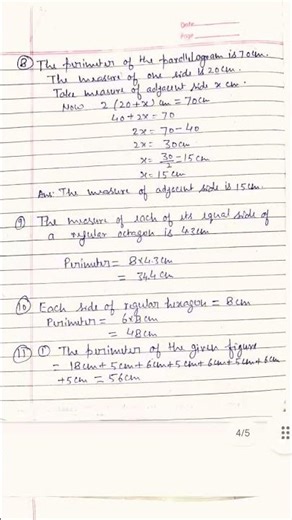 Date
Page
⑧ The perimeter of the parallelogram is 70cm.
The measure of one side is 20cm.
Take measure of adjacent side x cm.
Now 2 (20+x) cm = 70cm
40+2x = 70
2x = 70-40
2x = 30cm
x = 30/2 = 15cm
x = 15cm
Ans: The measure of adjecent side is 15cm.
⑨ The measure of each of its equal side of
a regular octagon is 43cm.
Perimeter = 8×43cm
= 344cm
⑩ Each side of regular hexagon = 8cm
Perimeter = 6×8cm
= 48cm
⑪ ① The perimeter of the given figure
= 18cm+5cm+6cm+5cm+6cm+5cm+6cm
+5cm = 56cm
4/5